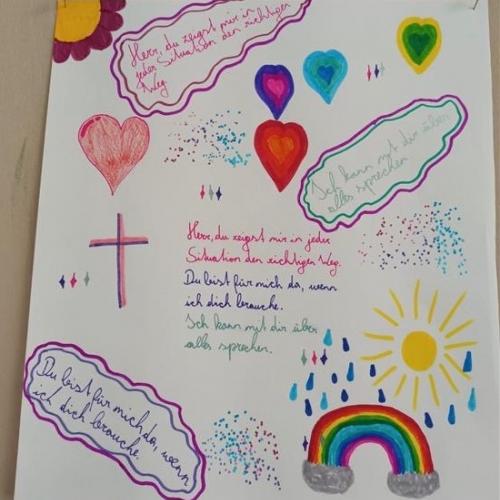 Herr, du zeigst mir in
jeder Situation den richtigen
Weg
Ich kann mit dir über
alles sprechen
Herr, du zeigst mir in jeder
Situation den richtigen Weg.
Du bist für mich da, wenn
ich dich brauche.
Ich kann mit dir über
alles sprechen.
Du bist für mich da, wenn
ich dich brauche.